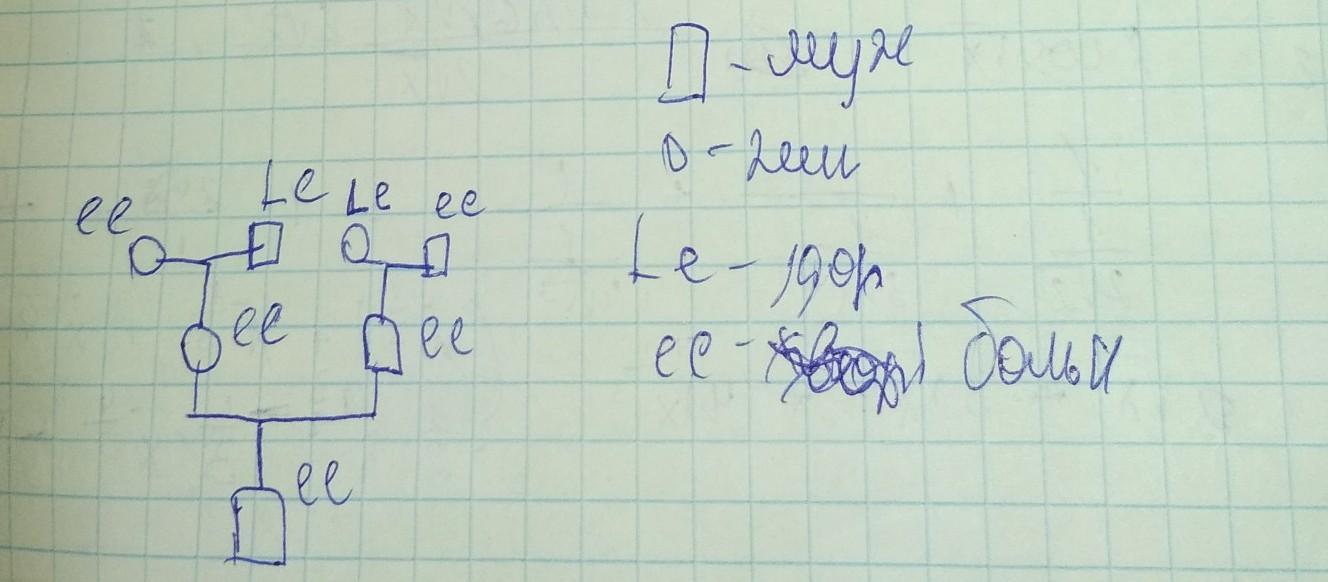 ▯ - муж
о - жен
Le - здор
ee - больн
ee Le Le ee
ee ee
ee